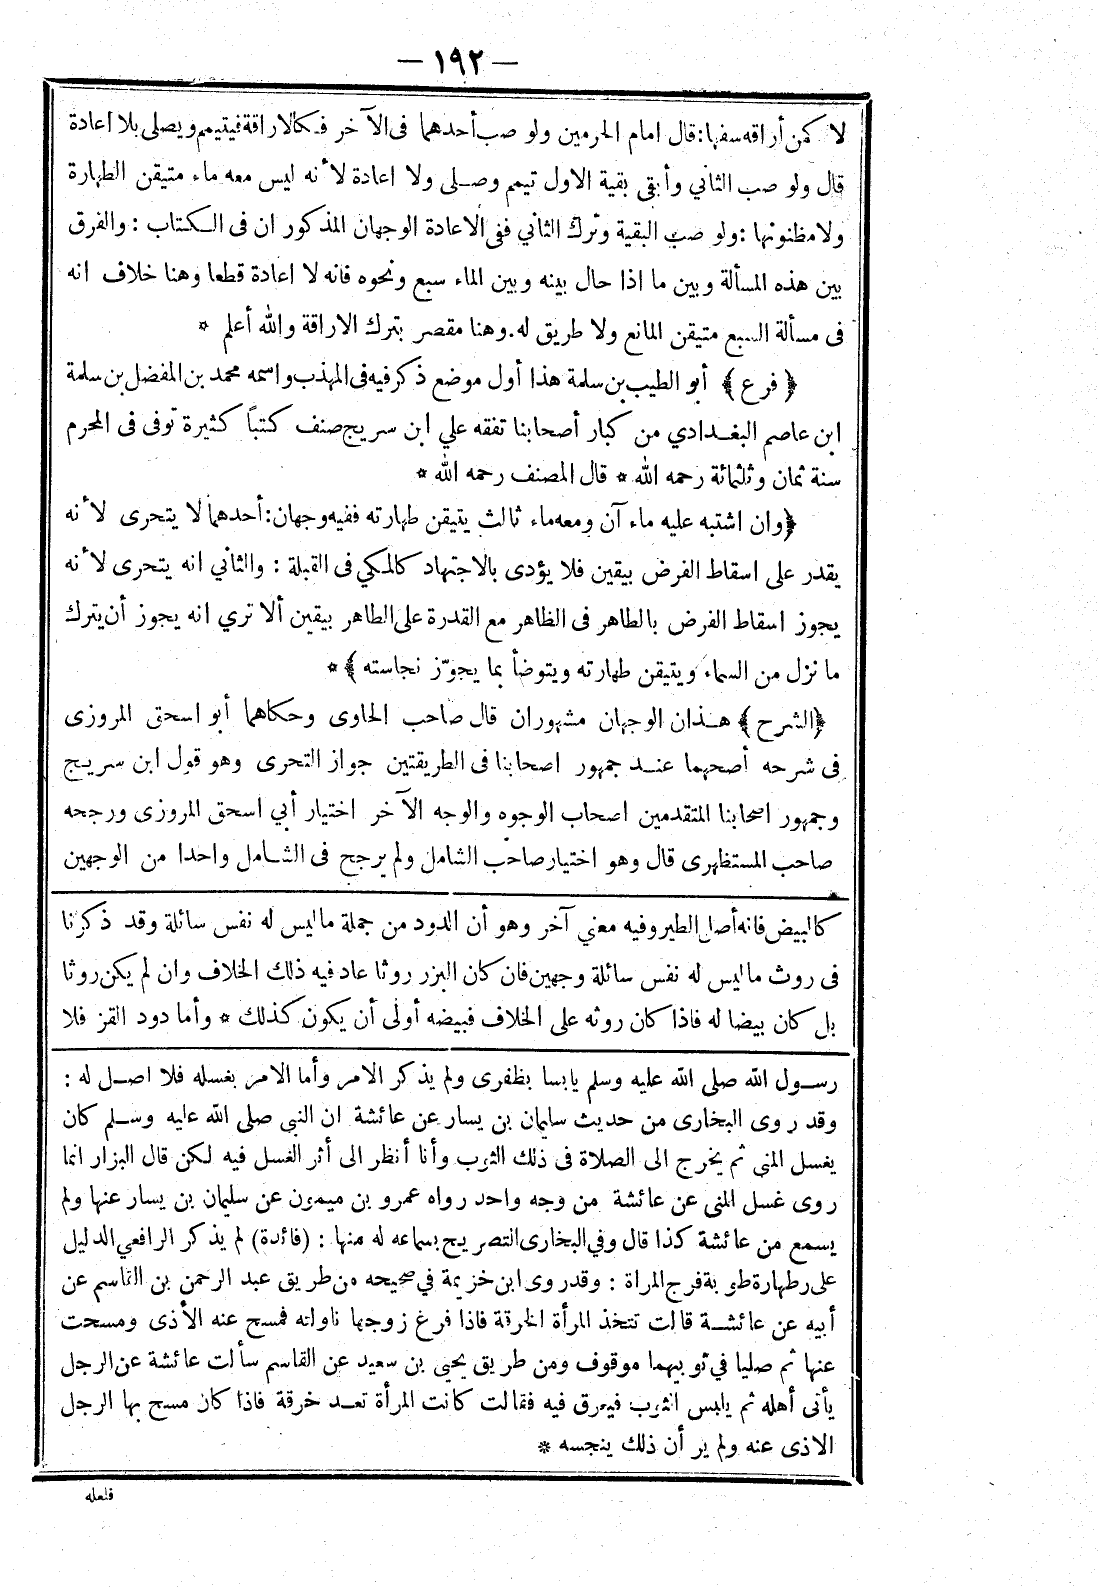 — ١٩٢ —
لا كمن أراقه سفها: قال امام الحرمين ولو صب أحدهما فى الآخر فكالاراقة فيتيمم ويصلى بلا اعادة
قال ولو صب الثاني وأبقى بقية الاول تيمم وصلى ولا اعادة لأنه ليس معه ماء متيقن الطهارة
ولا مظنونها : ولو صب البقية وترك الثاني ففى الاعادة الوجهان المذكور ان فى الكتاب : والفرق
بين هذه المسألة وبين ما اذا حال بينه وبين الماء سبع ونحوه فانه لا اعادة قطعا وهنا خلاف انه
فى مسألة السبع متيقن المانع ولا طريق له. وهنا مقصر بترك الاراقة والله أعلم *
﴿ فرع ﴾ أبو الطيب بن سلمة هذا أول موضع ذكر فيه فى المهذب واسمه محمد بن المفضل بن سلمة
ابن عاصم البغدادي من كبار أصحابنا تفقه علي ابن سريج صنف كتباً كثيرة توفى فى المحرم
سنة ثمان وثلثمائة رحمه الله * قال المصنف رحمه الله *
﴿ وان اشتبه عليه ماء آن ومعه ماء ثالث يتيقن طهارته ففيه وجهان: أحدهما لا يتحرى لأنه
يقدر على اسقاط الفرض بيقين فلا يؤدى بالاجتهاد كالمكي فى القبلة : والثاني انه يتحرى لأنه
يجوز اسقاط الفرض بالطاهر فى الظاهر مع القدرة على الطاهر بيقين ألا تري انه يجوز أن يترك
ما نزل من السماء ويتيقن طهارته ويتوضأ بما يجوّز نجاسته ﴾ *
﴿ الشرح ﴾ هذان الوجهان مشهوران قال صاحب الحاوى وحكاهما أبو اسحق المروزى
فى شرحه أصحهما عند جمهور اصحابنا فى الطريقتين جواز التحرى وهو قول ابن سريج
وجمهور اصحابنا المتقدمين اصحاب الوجوه والوجه الآخر اختيار أبي اسحق المروزى ورجحه
صاحب المستظهرى قال وهو اختيار صاحب الشامل ولم يرجح فى الشامل واحدا من الوجهين
كالبيض فانه أصل الطير وفيه معني آخر وهو أن الدود من جملة ما ليس له نفس سائلة وقد ذكرنا
فى روث ما ليس له نفس سائلة وجهين فان كان البزر روثا عاد فيه ذلك الخلاف وان لم يكن روثا
بل كان بيضا له فاذا كان روثه على الخلاف فبيضه أولى أن يكون كذلك * وأما دود القز فلا
رسول الله صلى الله عليه وسلم يابسا بظفرى ولم يذكر الامر وأما الامر بغسله فلا اصل له :
وقد روى البخارى من حديث سليمان بن يسار عن عائشة ان النبي صلى الله عليه وسلم كان
يغسل المنى ثم يخرج الى الصلاة فى ذلك الثوب وأنا أنظر الى أثر الغسل فيه لكن قال البزار انما
روى غسل المنى عن عائشة من وجه واحد رواه عمرو بن ميمون عن سليمان بن يسار عنها ولم
يسمع من عائشة كذا قال وفي البخارى التصريح بسماعه له منها : (فائدة) لم يذكر الرافعي الدليل
على رطهارة طوبة فرج المراة : وقد روى ابن خزيمة في صحيحه من طريق عبد الرحمن بن القاسم عن
أبيه عن عائشة قالت تتخذ المرأة الخرقة فاذا فرغ زوجها ناولته فمسح عنه الأذى ومسحت
عنها ثم صليا في ثوبيهما موقوف ومن طريق يحيى بن سعيد عن القاسم سألت عائشة عن الرجل
يأتى أهله ثم يلبس الثوب فيعرق فيه فقالت كانت المرأة تعد خرقة فاذا كان مسح بها الرجل
الاذى عنه ولم ير أن ذلك ينجسه *
فلعله